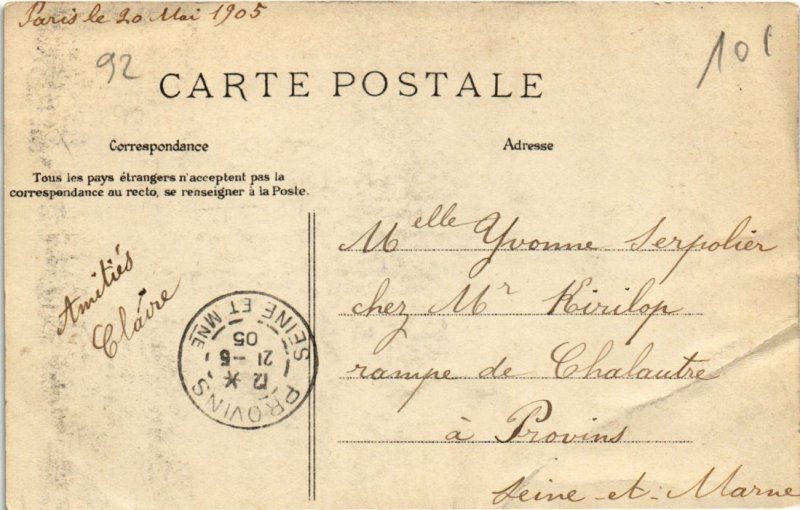 Paris le 20 Mai 1905
92
101
CARTE POSTALE
Correspondance
Adresse
Tous les pays étrangers n'acceptent pas la
correspondance au recto, se renseigner à la Poste.
Amitiés
Claire
Melle Yvonne Serpolier
chez Mr Kirilop
rampe de Chalautre
à Provins
Seine-et-Marne
PROVINS
12 *
21-5
05
SEINE ET MNE